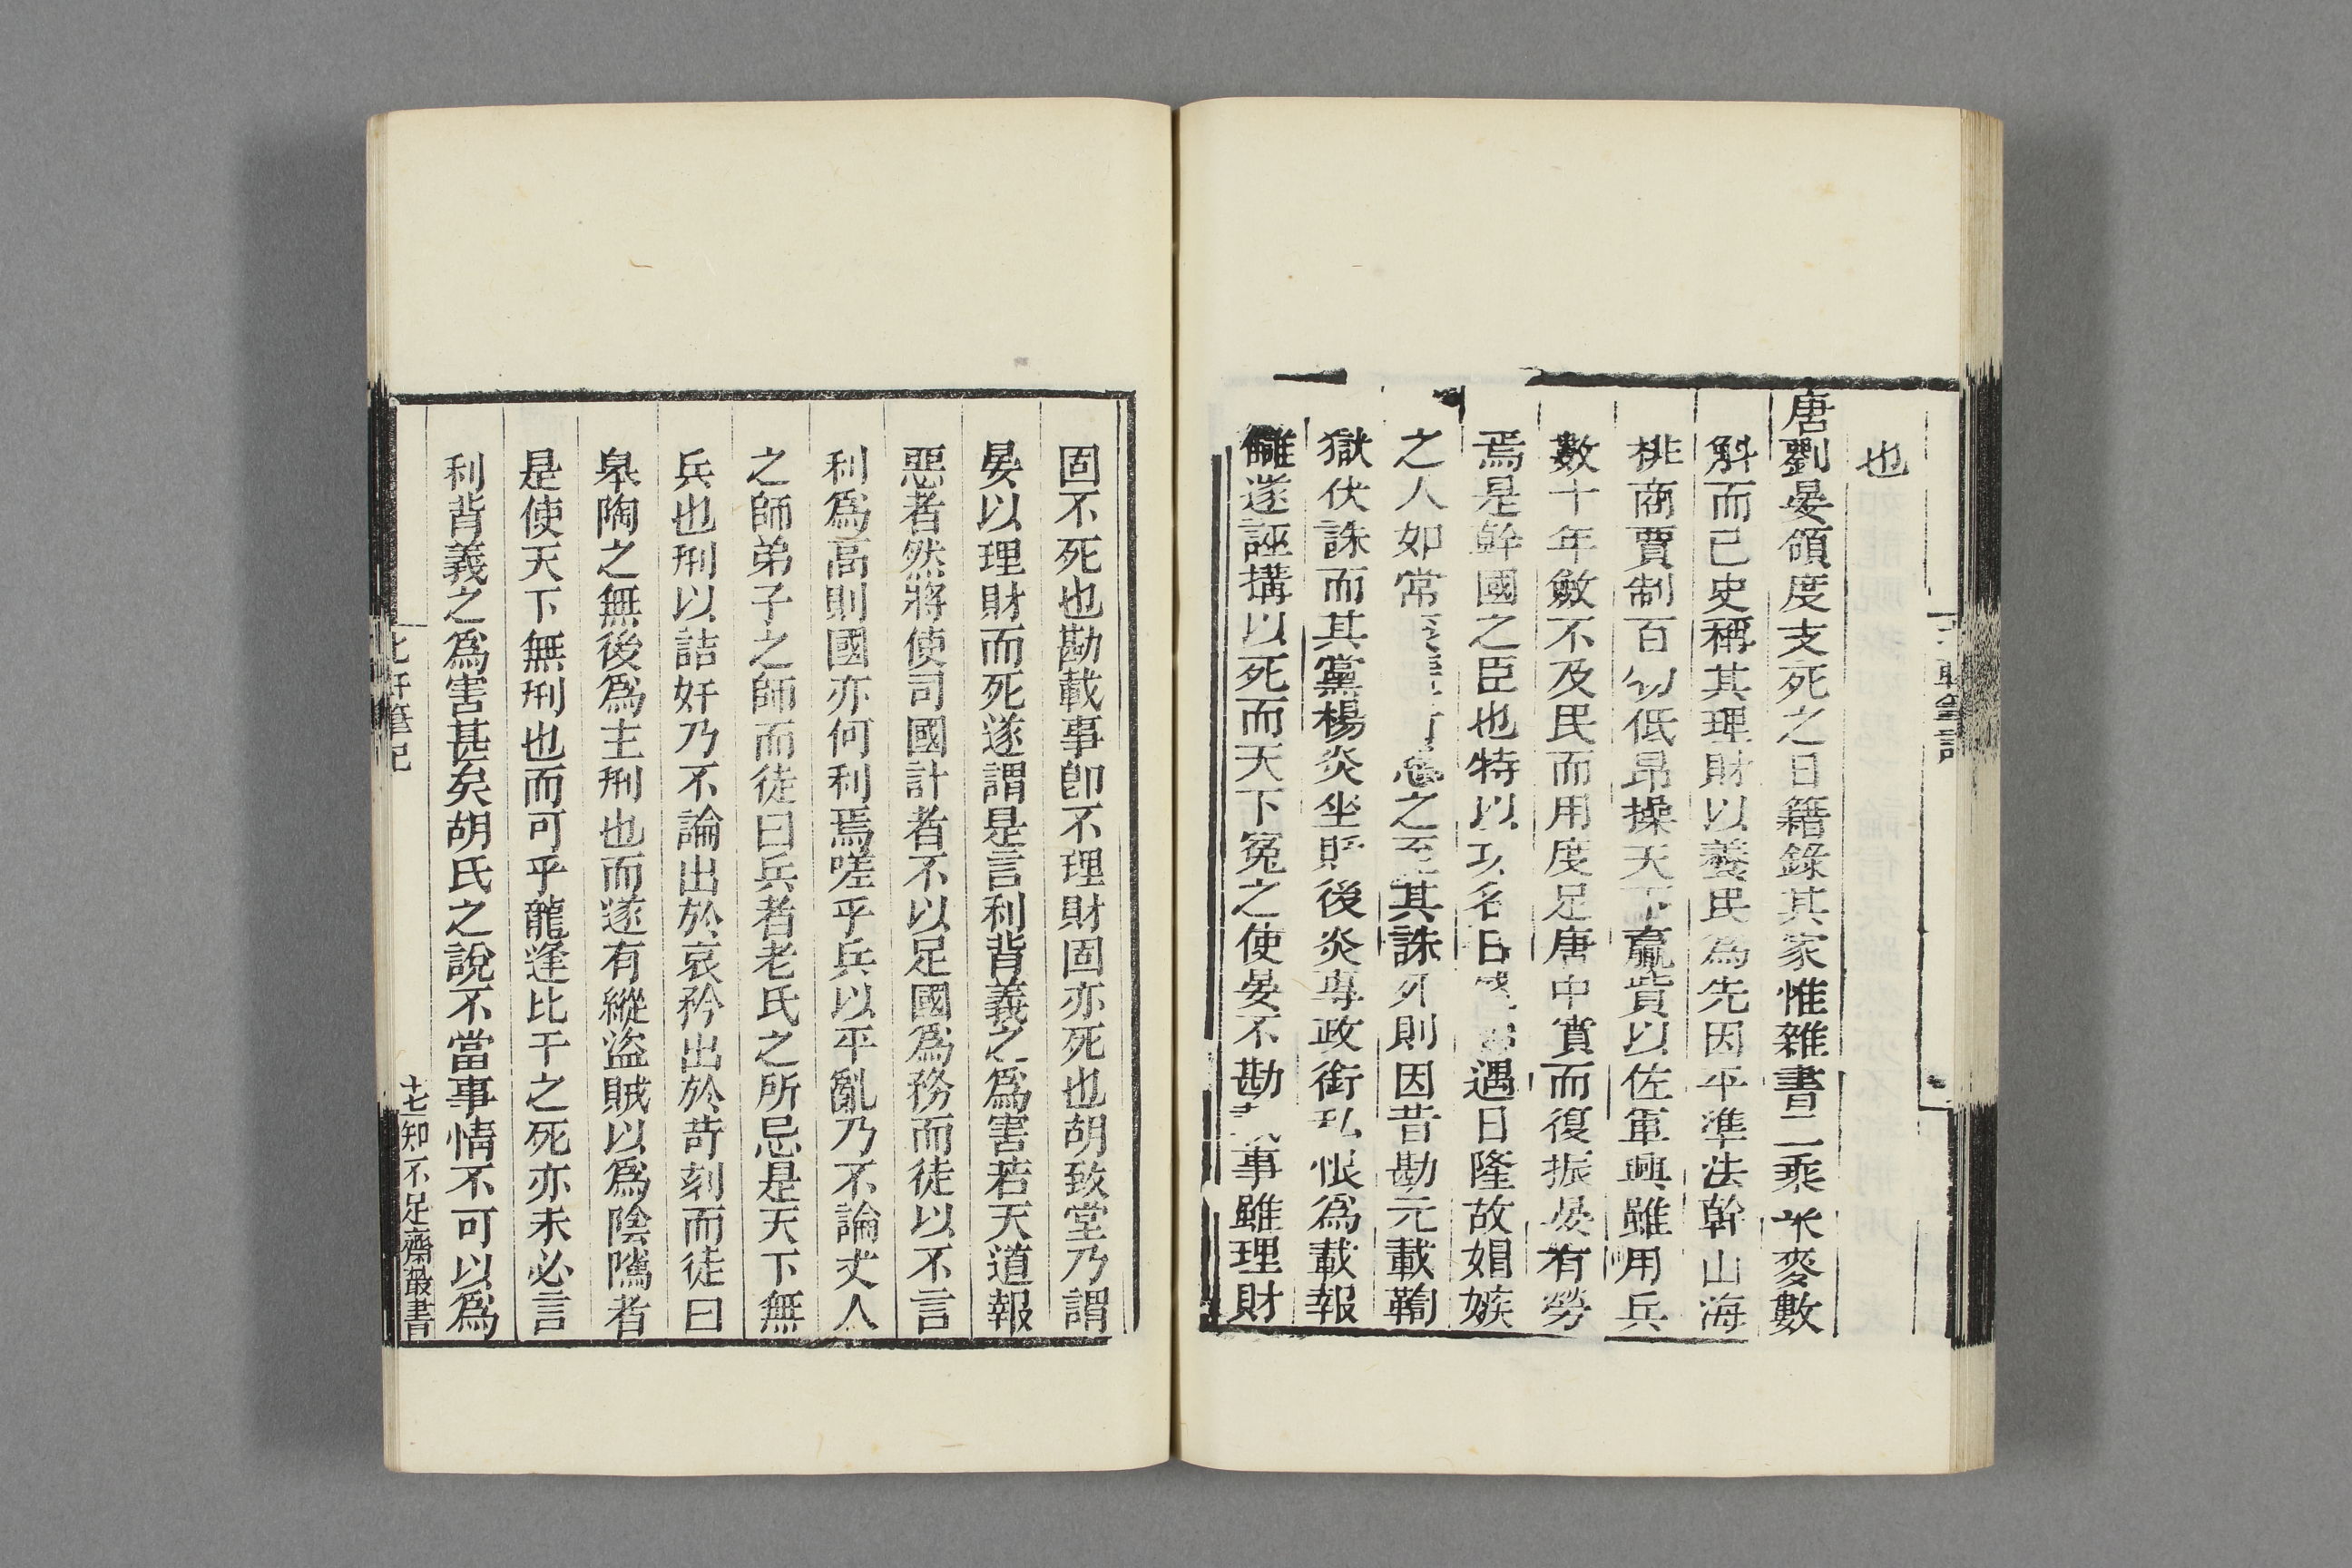 也
唐劉晏領度支死之日籍錄其家惟雜書二乘米麥數
斛而已史稱其理財以養民為先因平準法斡山海
排商賈制百物低昂操天下贏貲以佐軍興雖用兵
數十年斂不及民而用度足唐中僨而復振晏有勞
焉是幹國之臣也特以功名日盛遇日隆故媢嫉
之人如常之至其誅死則因昔勘元載鞫
獄伏誅而其黨楊炎坐貶後炎專政銜私恨爲載報
讎遂誣搆以死而天下冤之使晏不勘事雖理財
固不死也勘載事卽不理財固亦死也胡致堂乃謂
晏以理財而死遂謂是言利背義之爲害若天道報
惡者然將使司國計者不以足國爲務而徒以不言
利爲高則國亦何利焉嗟乎兵以平亂乃不論丈人
之師弟子之師而徒曰兵者老氏之所忌是天下無
兵也刑以詰奸乃不論出於哀矜出於苛刻而徒曰
皋陶之無後爲主刑也而遂有縱盜賊以爲陰隲者
是使天下無刑也而可乎龍逢比干之死亦未必言
利背義之爲害甚矣胡氏之說不當事情不可以爲
北軒筆記
十七知不足齋叢書